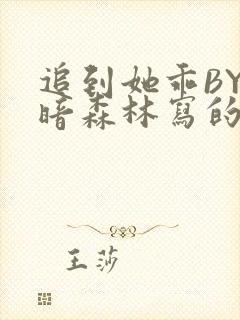 追到她乖BY
暗森林寫的
王莎